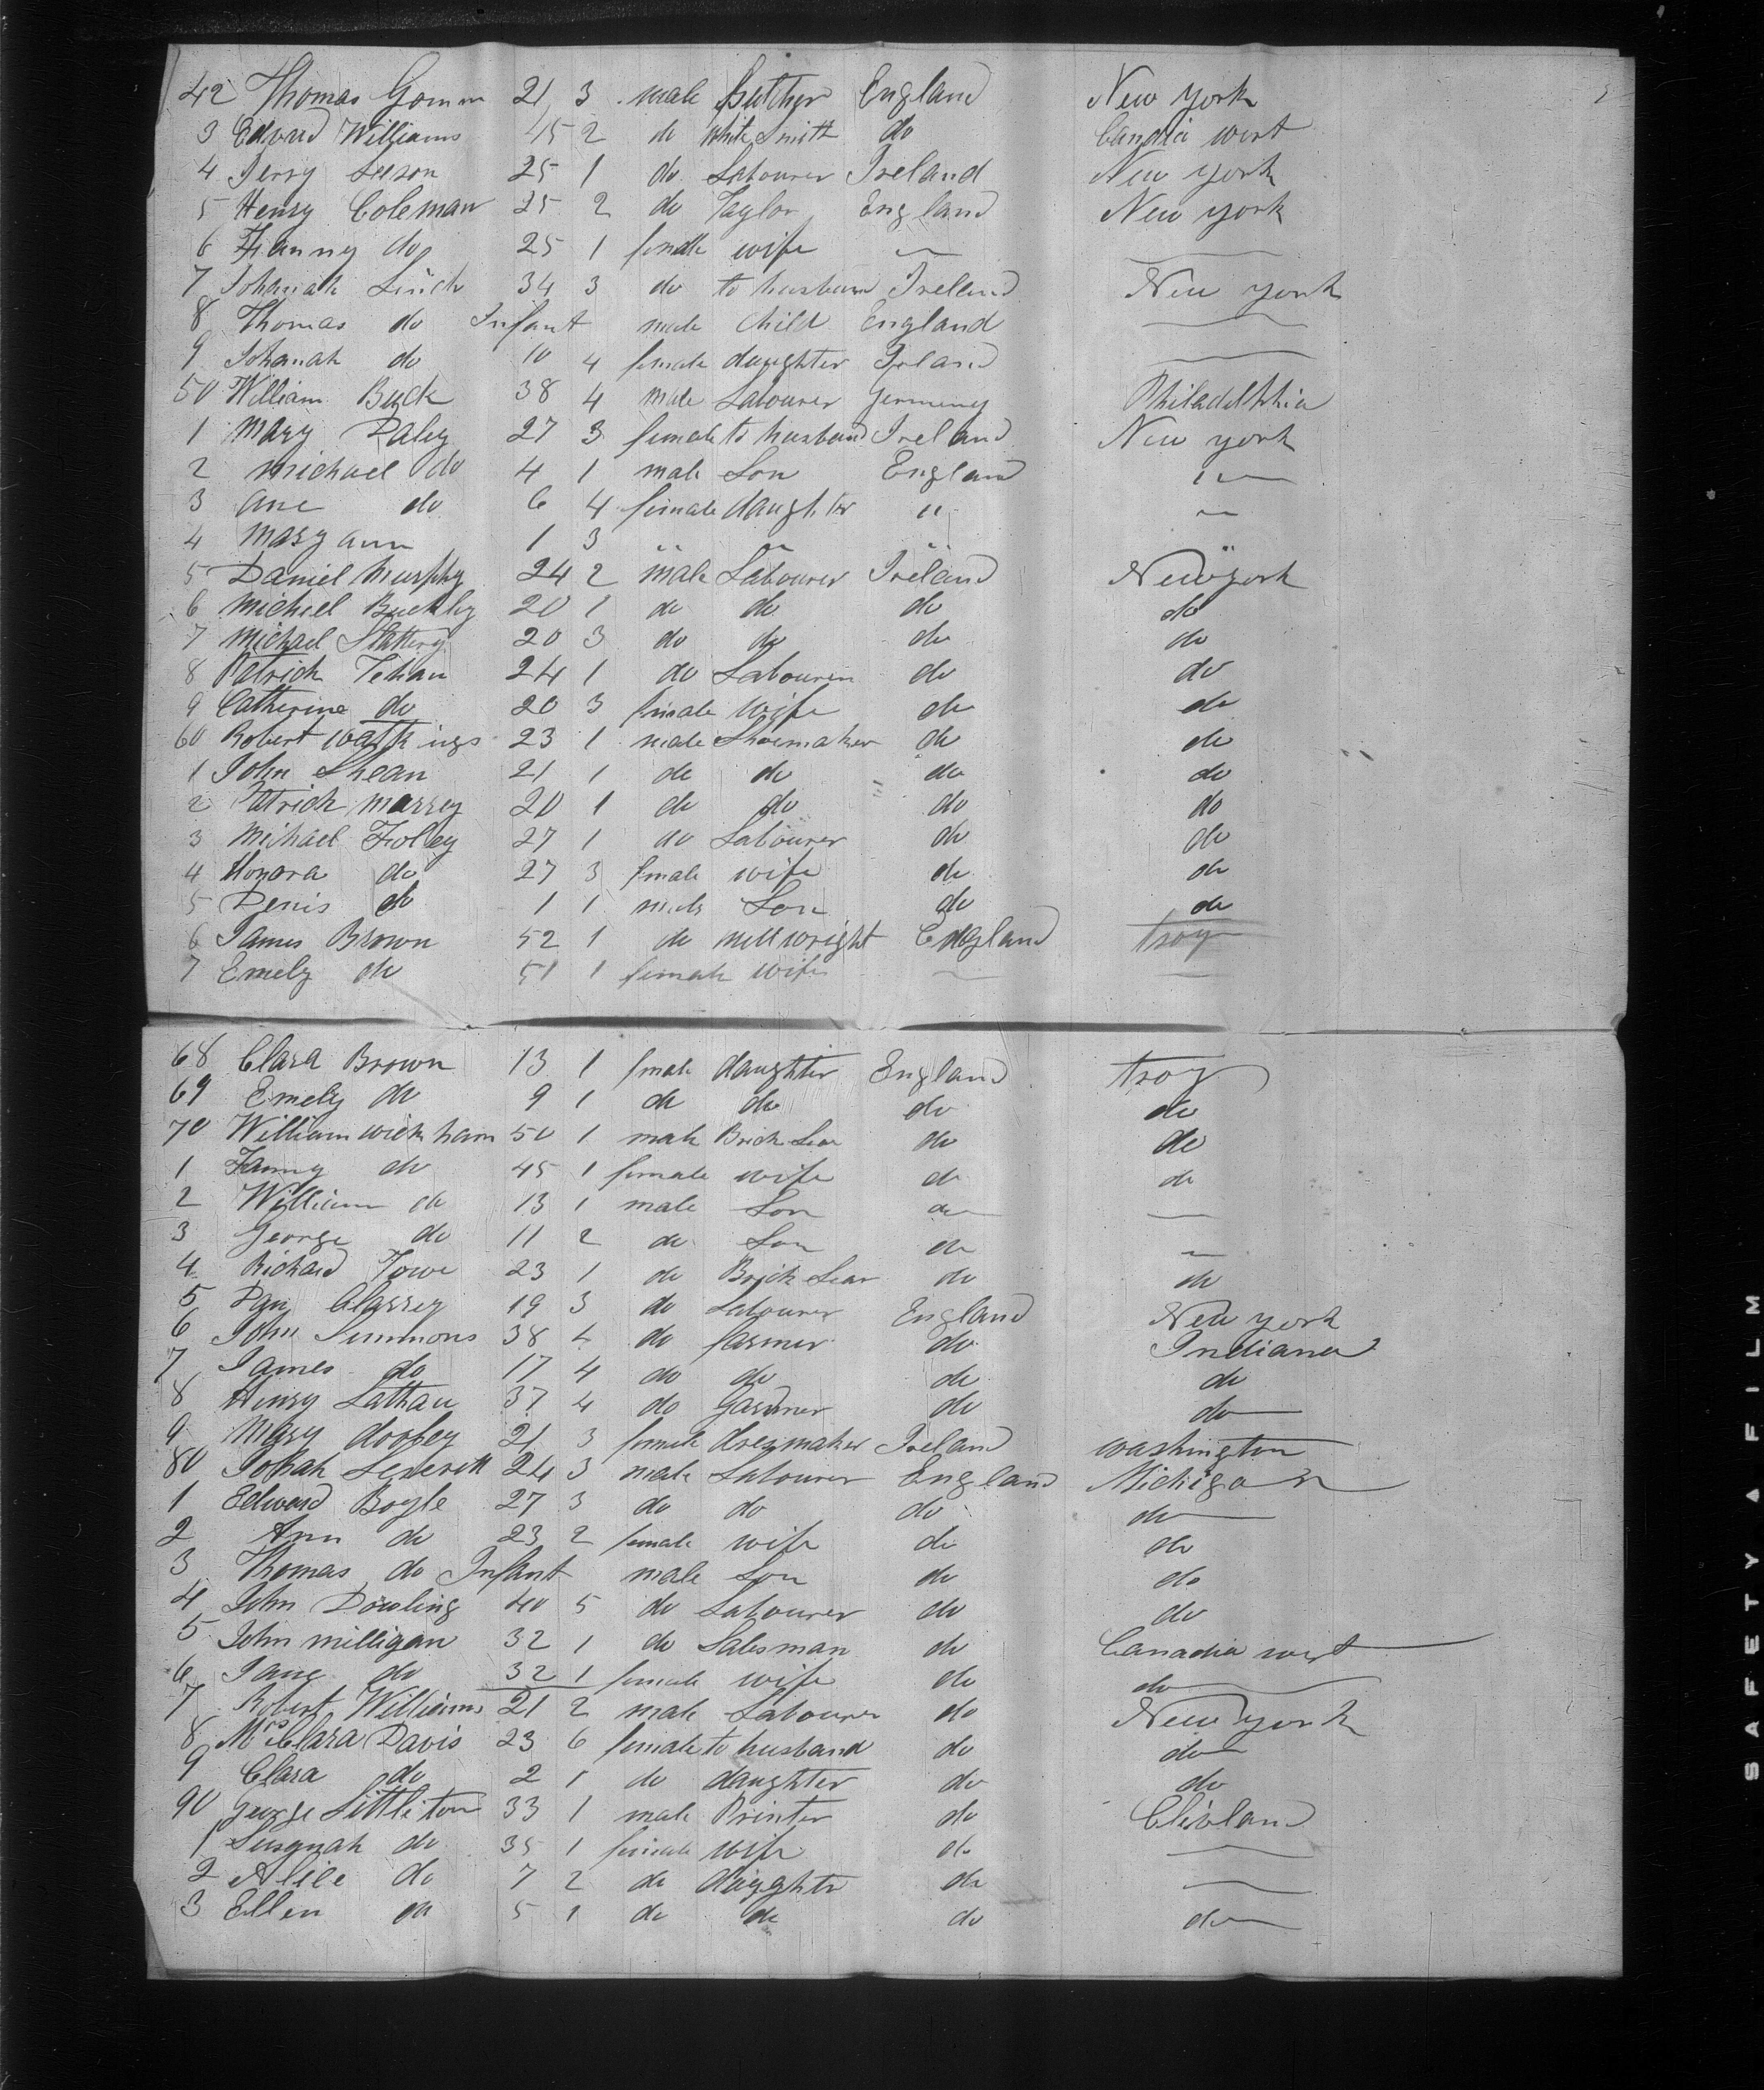 42 Thomas Gomm 21 3 male Butcher England New York
3 Edward Williams 45 2 do White Smith do Candia west
4 Jerry Leeson 25 1 do Labourer Ireland New York
5 Henry Coleman 25 2 do Taylor England New York
6 Fanny do 25 1 female wife
7 Johanah Linch 34 3 do to husband Ireland New York
8 Thomas do Infant male Child England
9 Johanah do 10 4 female daughter Irland
50 William Buck 38 4 male Labourer Germeny Philadelthia
1 Mary Daley 27 3 female to husband Ireland New York
2 Michael do 4 1 male Son England "
3 Ane do 6 4 female daughter "
4 Mary ann 1 3 " " " "
5 Daniel Murphy 24 2 male Labourer Ireland New York
6 Michael Buckley 20 1 do do do do
7 Michael Slattery 20 3 do do do do
8 Patrick Tehan 24 1 do Labourer do do
9 Catherine do 20 3 female wife do do
60 Robert Watkings 23 1 male Shoemaker do do
1 John Shean 21 1 do do do do
2 Patrick Massey 20 1 do do do do
3 Michael Foley 27 1 do Labourer do do
4 Honora do 27 3 female wife do do
5 Denis do 1 1 male Son do do
6 James Brown 52 1 do millwright England troy
7 Emely do 51 1 female wife
68 Clara Brown 13 1 female daughter England troy
69 Emely do 9 1 do do do do
70 William Wickham 50 1 male Brick do do
1 Fanny do 45 1 female wife do do
2 William do 13 1 male Son do
3 George do 11 2 do Son do
4 Richard Towe 23 1 do Brick do do
5 Dan 19 3 do Labourer England New York
6 John Simmons 38 4 do farmer do Indiana
7 James do 17 4 do do do do
8 Henry Lathan 37 4 do Gardner do do
9 Mary 21 3 female dresmaker Ireland Washington
80 24 3 male Labourer England Michigan
1 Edward Boyle 27 3 do do do do
2 Ann do 23 2 female wife do do
3 Thomas do Infant male Son do do
4 John Dowling 40 5 do Labourer do do
5 John Milligan 32 1 do Salesman do Canadia west
6 Jane do 32 1 female wife do do
7 Robert Williams 21 2 male Labourer do New York
8 Mrs Clara Davis 23 6 female to husband do do
9 Clara do 2 1 do daughter do do
90 George Littleton 33 1 male Printer do Clevland
1 Susanah do 35 1 female wife do
2 Alice do 7 2 do daughter do
3 Ellen do 5 1 do do do do
SAFETY A FILM